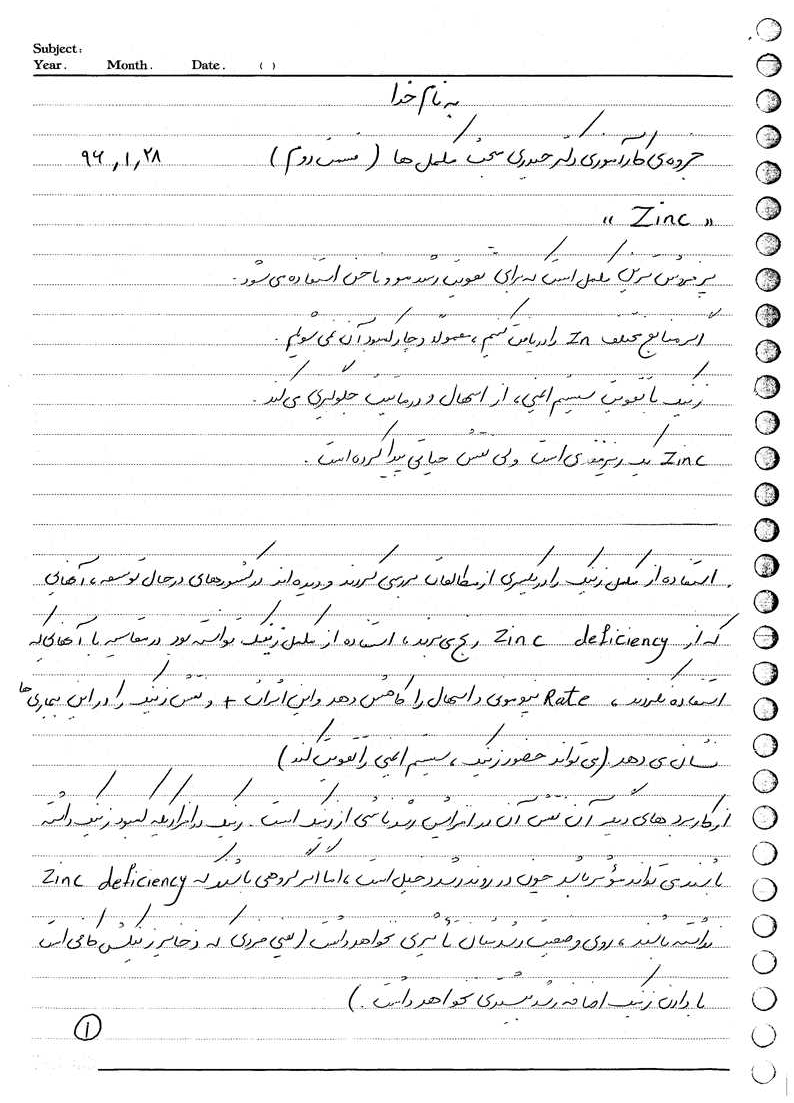 Subject:
Year. Month. Date. ( )
به نام خدا
جزوه ی کارآموزی دکتر حیدری مبحث مکمل ها ( قسمت دوم ) ۹۶/۱/۲۸
" Zinc "
پر فروش ترین مکمل است که برای تقویت رشد مو و ناخن استفاده می شود.
اگر منابع مختلف Zn را دریافت کنیم ، معمولا دچار کمبود آن نمی شویم.
زینک با تقویت سیستم ایمنی، از اسهال و جلوگیری می کند.
Zinc یک ریزمغذی است ولی نقش حیاتی پیدا کرده است.
استفاده از مکمل زینک را در یکسری از مطالعات بررسی کردند و دیده اند در کشورهای درحال توسعه ، آنهایی
که از Zinc deficiency رنج می برند ، استفاده از مکمل زینک توانسته بود در مقایسه با آنهایی که
استفاده نکردند ، Rate پنومونی و اسهال را کاهش دهد و این اثرات + و نقش زینک را در این بیماری ها
نشان می دهد. (می تواند حضور زینک ، سیستم ایمنی را تقویت کند)
از کاربرد های دیگر آن نقش آن در افزایش رشد ناشی از زینک است . زینک در افرادیکه کمبود زینک داشته
باشند می تواند مؤثر باشد چون در روند رشد دخیل است ، اما اگر گروهی باشند که Zinc deficiency
نداشته باشند ، روی وضعیت رشدشان تأثیری نخواهد داشت (یعنی فردی که ذخایر زینکش کافی است
با دادن زینک اضافه رشد بیشتری نخواهد داشت .)
۱